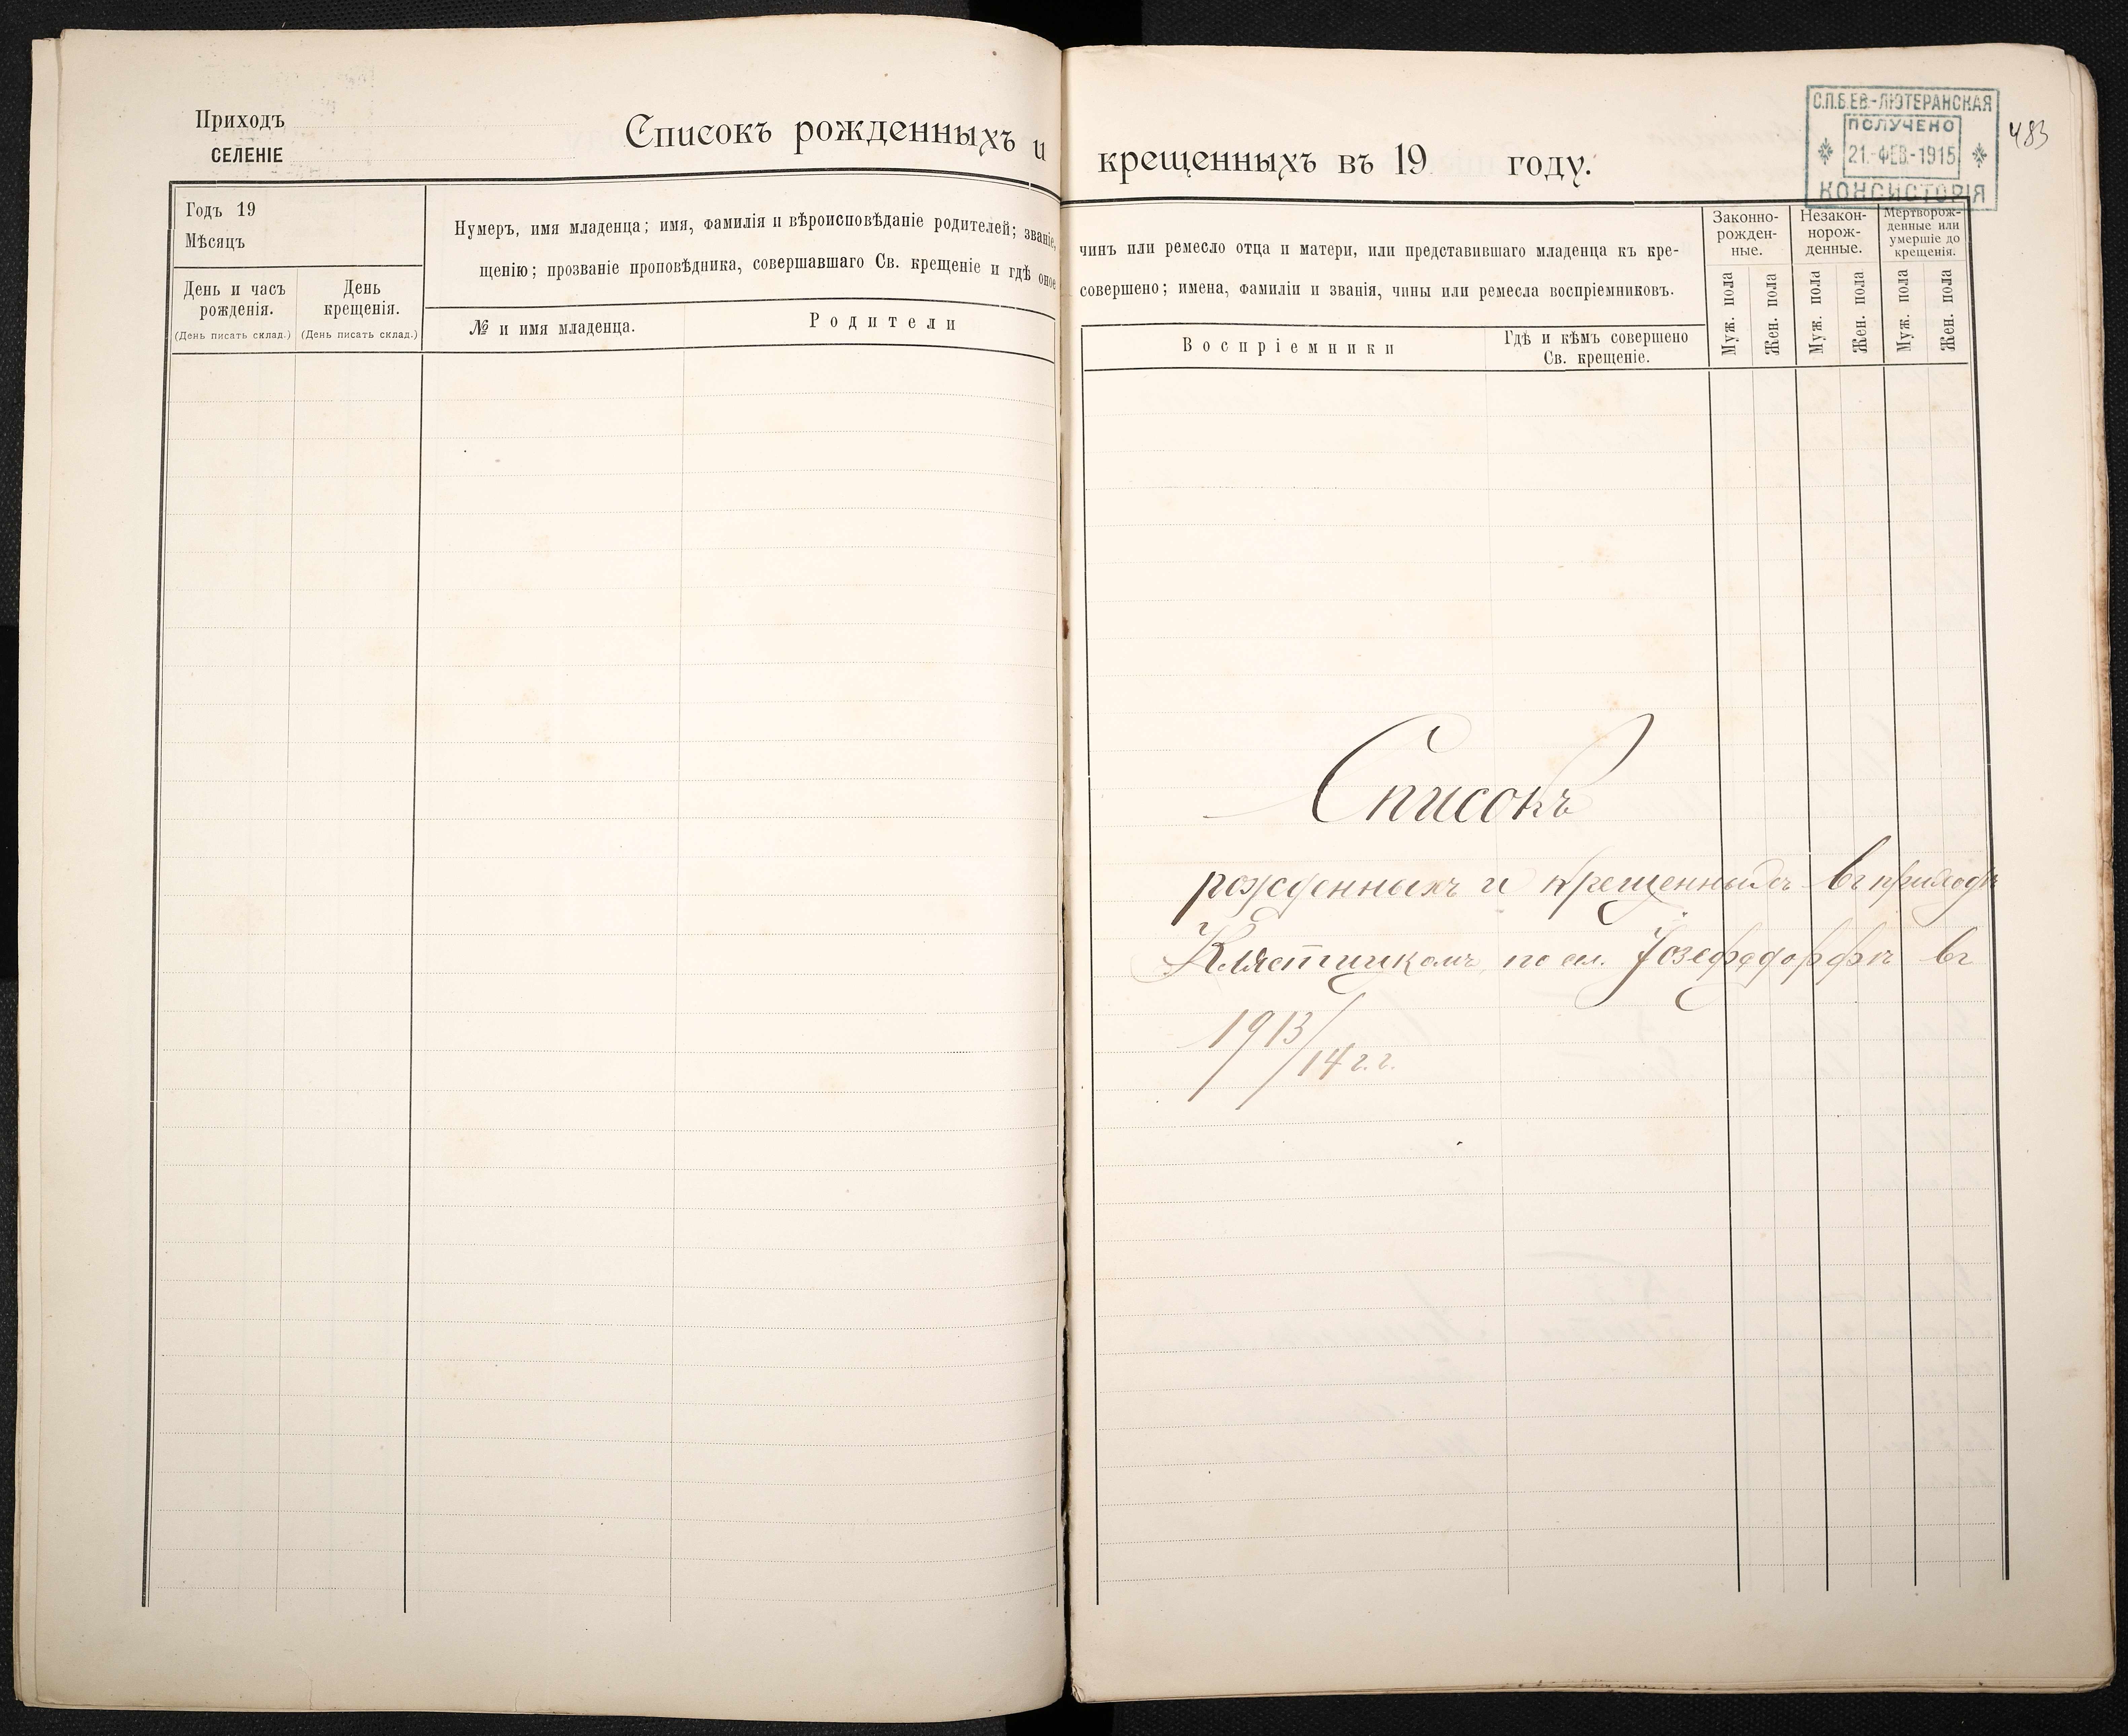 Приходъ
СЕЛЕНІЕ
Списокъ рожденныхъ и крещенныхъ въ 19 году.
С.П.Б.ЕВ.-ЛЮТЕРАНСКАЯ
ПОЛУЧЕНО
21.-ФЕВ.-1915
КОНСИСТОРІЯ
483
Годъ 19
Мѣсяцъ
День и часъ
рожденія.
(День писать склад.)
День
крещенія.
(День писать склад.)
Нумеръ, имя младенца; имя, фамилія и вѣроисповѣданіе родителей; званіе, чинъ или ремесло отца и матери, или представившаго младенца къ кре-
щенію; прозваніе проповѣдника, совершавшаго Св. крещеніе и гдѣ оное совершено; имена, фамиліи и званія, чины или ремесла воспріемниковъ.
№ и имя младенца.
Родители
Воспріемники
Гдѣ и кѣмъ совершено
Св. крещеніе.
Законно-
рожден-
ные.
Незакон-
норож-
денные.
Мертворож-
денные или
умершіе до
крещенія.
Муж. пола
Жен. пола
Муж. пола
Жен. пола
Муж. пола
Жен. пола
Списокъ
рожденныхъ и крещенныхъ въ приходѣ
Клястицкомъ, по сел. Іозефсдорфѣ въ
1913/14 г.г.